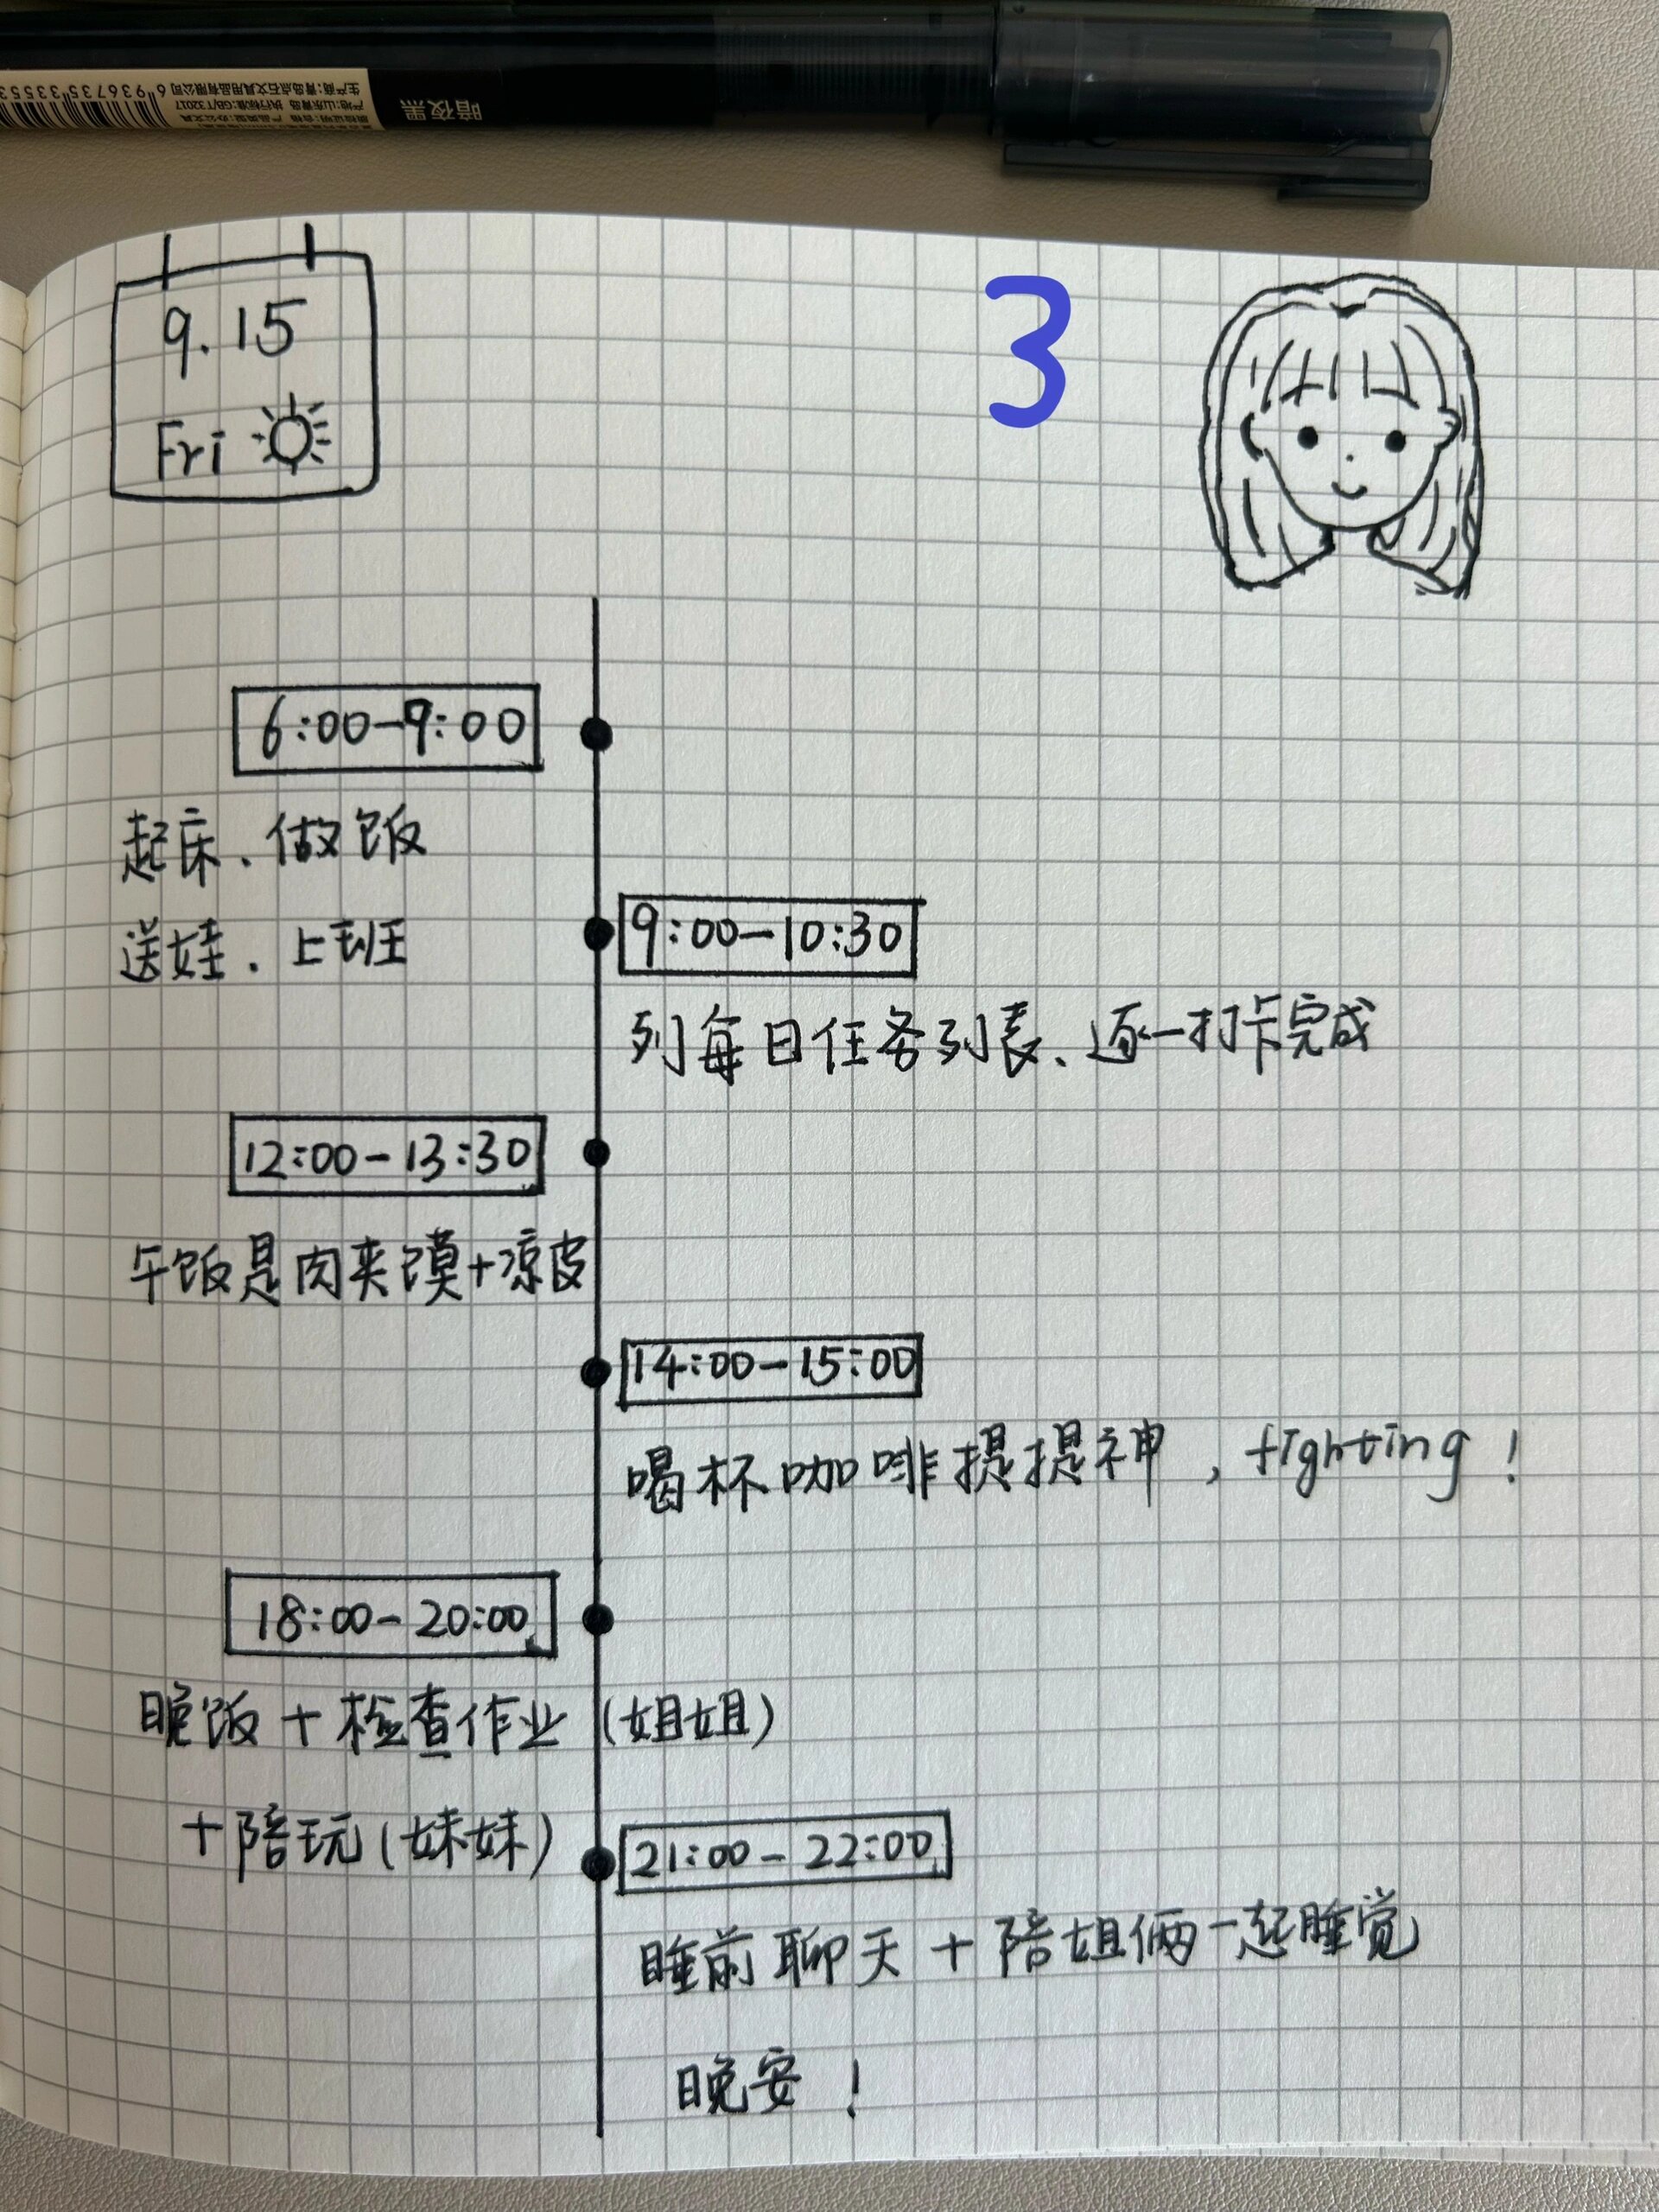 暗夜黑
6 936735 33553
生产商:青岛点石文具用品有限公司
产地:山东青岛 执行标准:GB/T 32017
9.15
Fri
3
6:00-9:00
起床、做饭
送娃、上班
9:00-10:30
列每日任务列表、逐一打卡完成
12:00-13:30
午饭是肉夹馍+凉皮
14:00-15:00
喝杯咖啡提提神,fighting!
18:00-20:00
晚饭+检查作业(姐姐)
+陪玩(妹妹)
21:00-22:00
睡前聊天+陪姐俩一起睡觉
晚安!